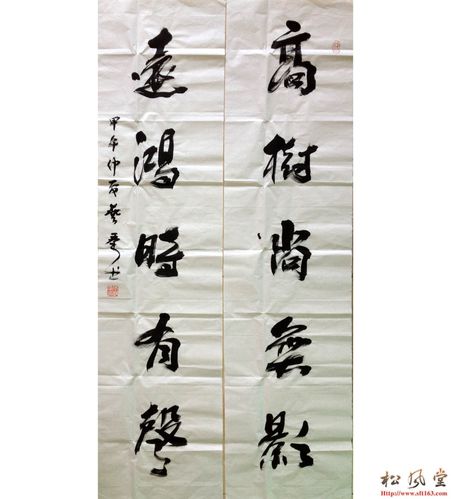 高樹尚無影
遠鴻時有聲
甲午仲
松风堂
Http://www.sf163.com